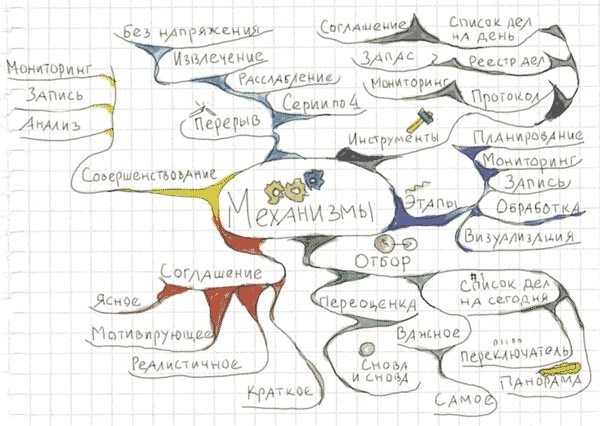 Механизмы
Перерыв
Без напряжения
Извлечение
Расслабление
Серии по 4
Инструменты
Соглашение
Список дел
на день
Запас
Реестр дел
Мониторинг
Протокол
Этапы
Планирование
Мониторинг
Запись
Обработка
Визуализация
Отбор
#1
Список дел
на сегодня
Переключатель
Панорама
Переоценка
Важное
Снова
и снова
Самое
Соглашение
Ясное
Мотивирующее
Реалистичное
Краткое
Совершенствование
Мониторинг
Запись
Анализ